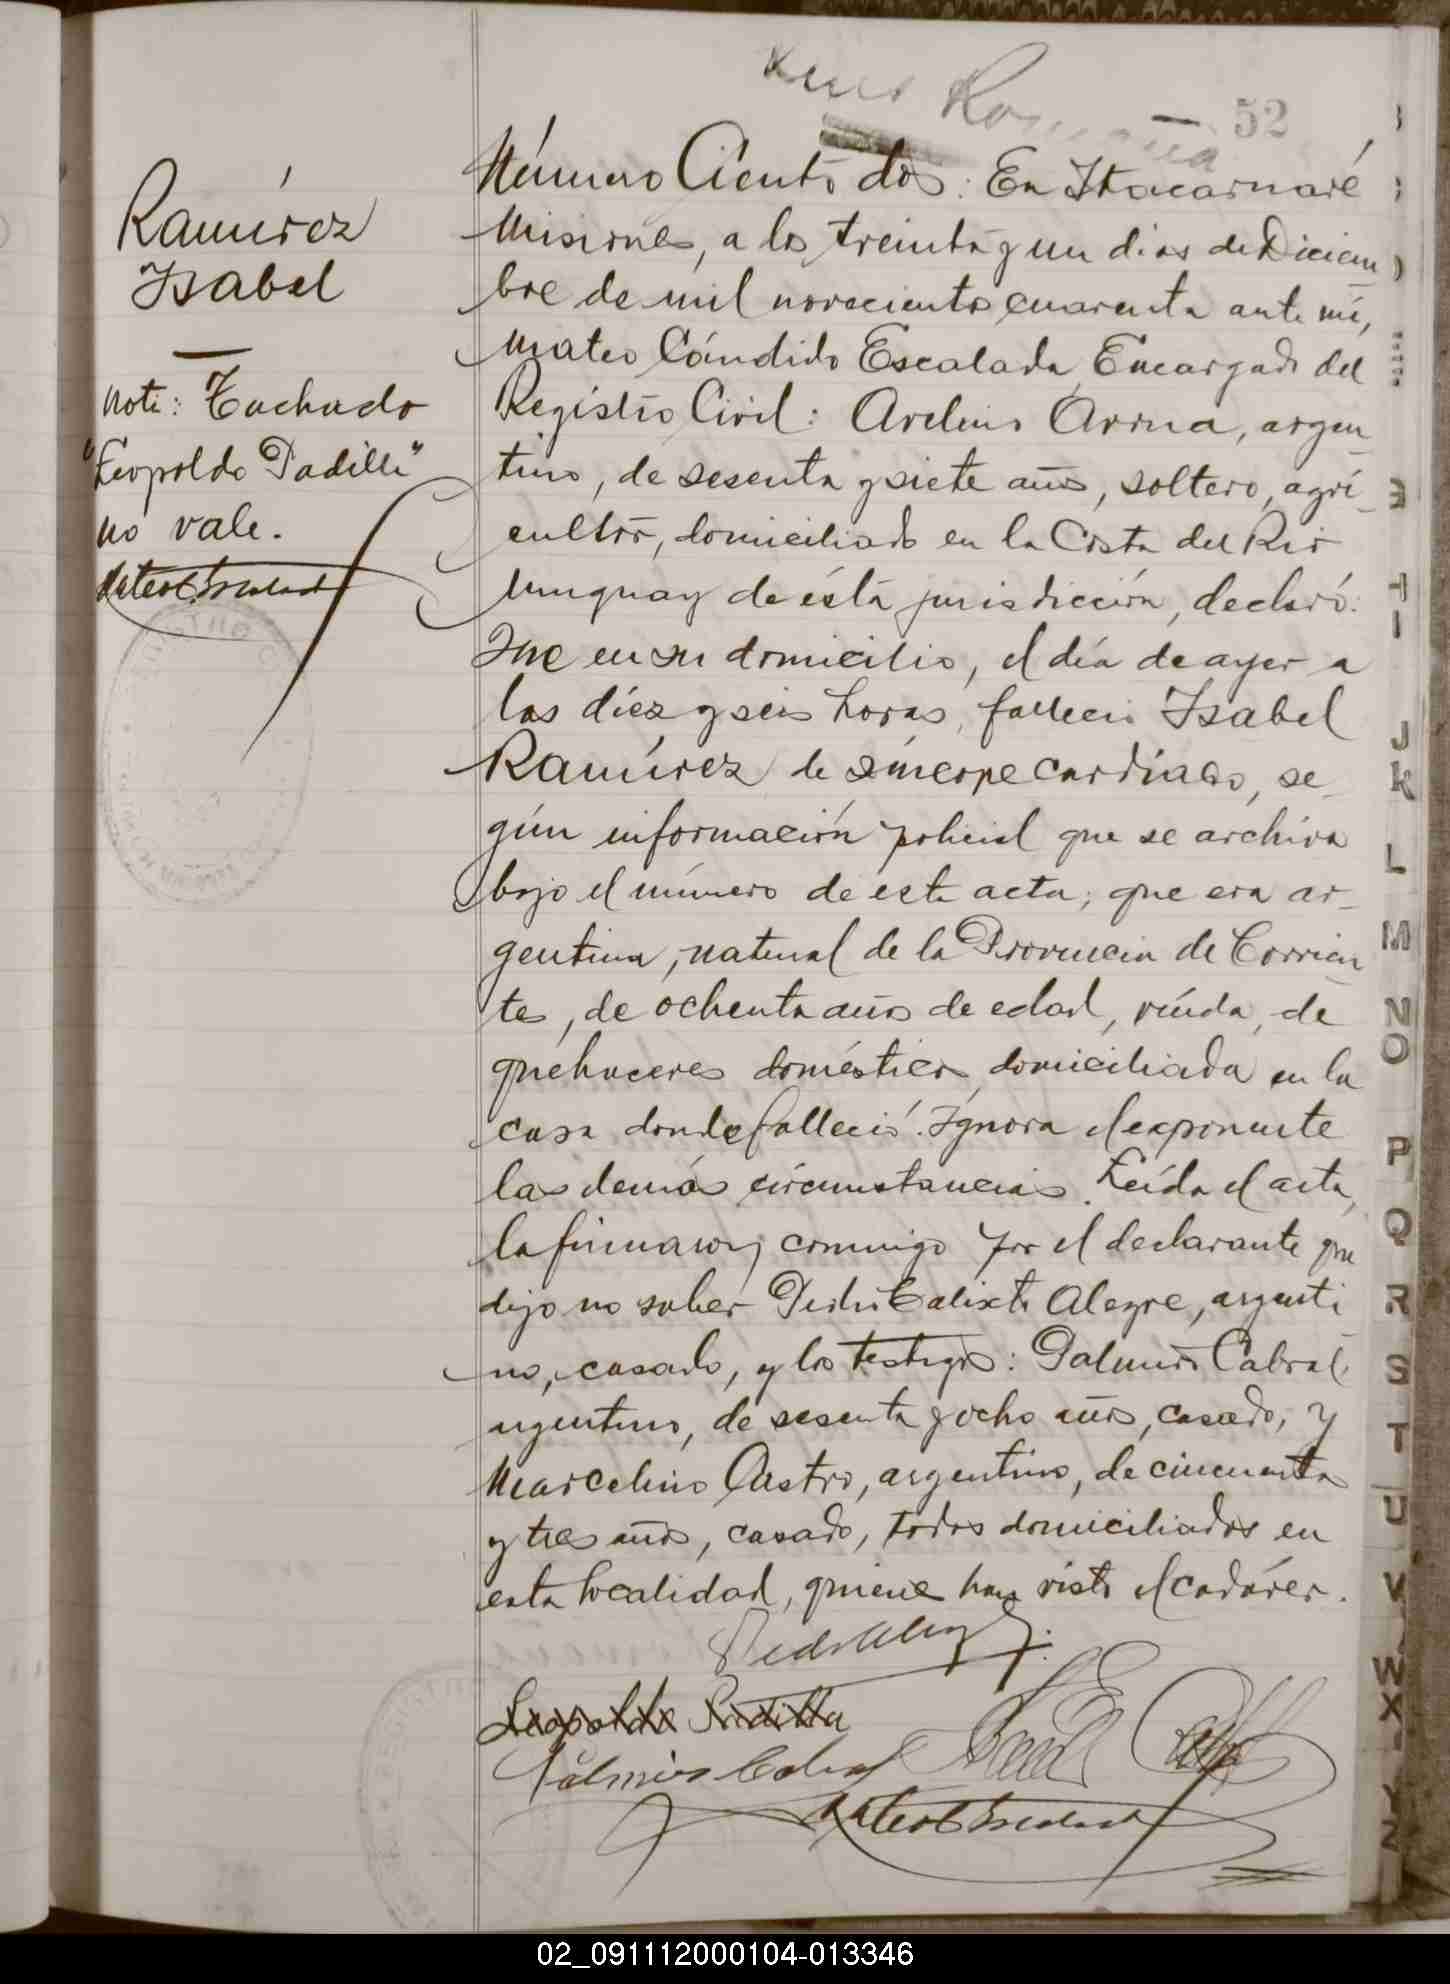 52
Ramírez
Isabel
Nota: Tachado
"Leopoldo Padilla"
no vale.
Número Ciento dos: En Itacaruaré
Misiones, a los treinta y un dias de Diciem
bre de mil novecientos cuarenta ante mí,
Mateo Cándido Escalada, Encargado del
Registro Civil: Avelino Arrua, argen
tino, de sesenta y siete años, soltero, agri
cultor, domiciliado en la Costa del Rio
Uruguay de ésta jurisdicción, declaró:
Que en su domicilio, el día de ayer a
las diéz y seis horas, falleció Isabel
Ramírez de síncope cardíaco, se
gún información policial que se archiva
bajo el número de esta acta; que era ar-
gentina, natural de la Provincia de Corrien
tes, de ochenta años de edad, viúda, de
quéhaceres domésticos, domiciliada en la
casa donde falleció. Ignora el exponente
las demás circunstancias. Leída el acta,
la firmaron conmigo por el declarante que
dijo no saber Pedro Calixto Alegre, argenti
no, casado, y los testigos: Palmiro Cabral,
argentino, de sesenta y ocho años, casado, y
Marcelino Castro, argentino, de cincuenta
y tres años, casado, todos domiciliados en
esta localidad, quienes han visto el cadáver.
Leopoldo Padilla
Palmiro Cabral
J
K
L
M
N
O
P
Q
R
S
T
U
V
W
X
Y
Z
02_091112000104-013346